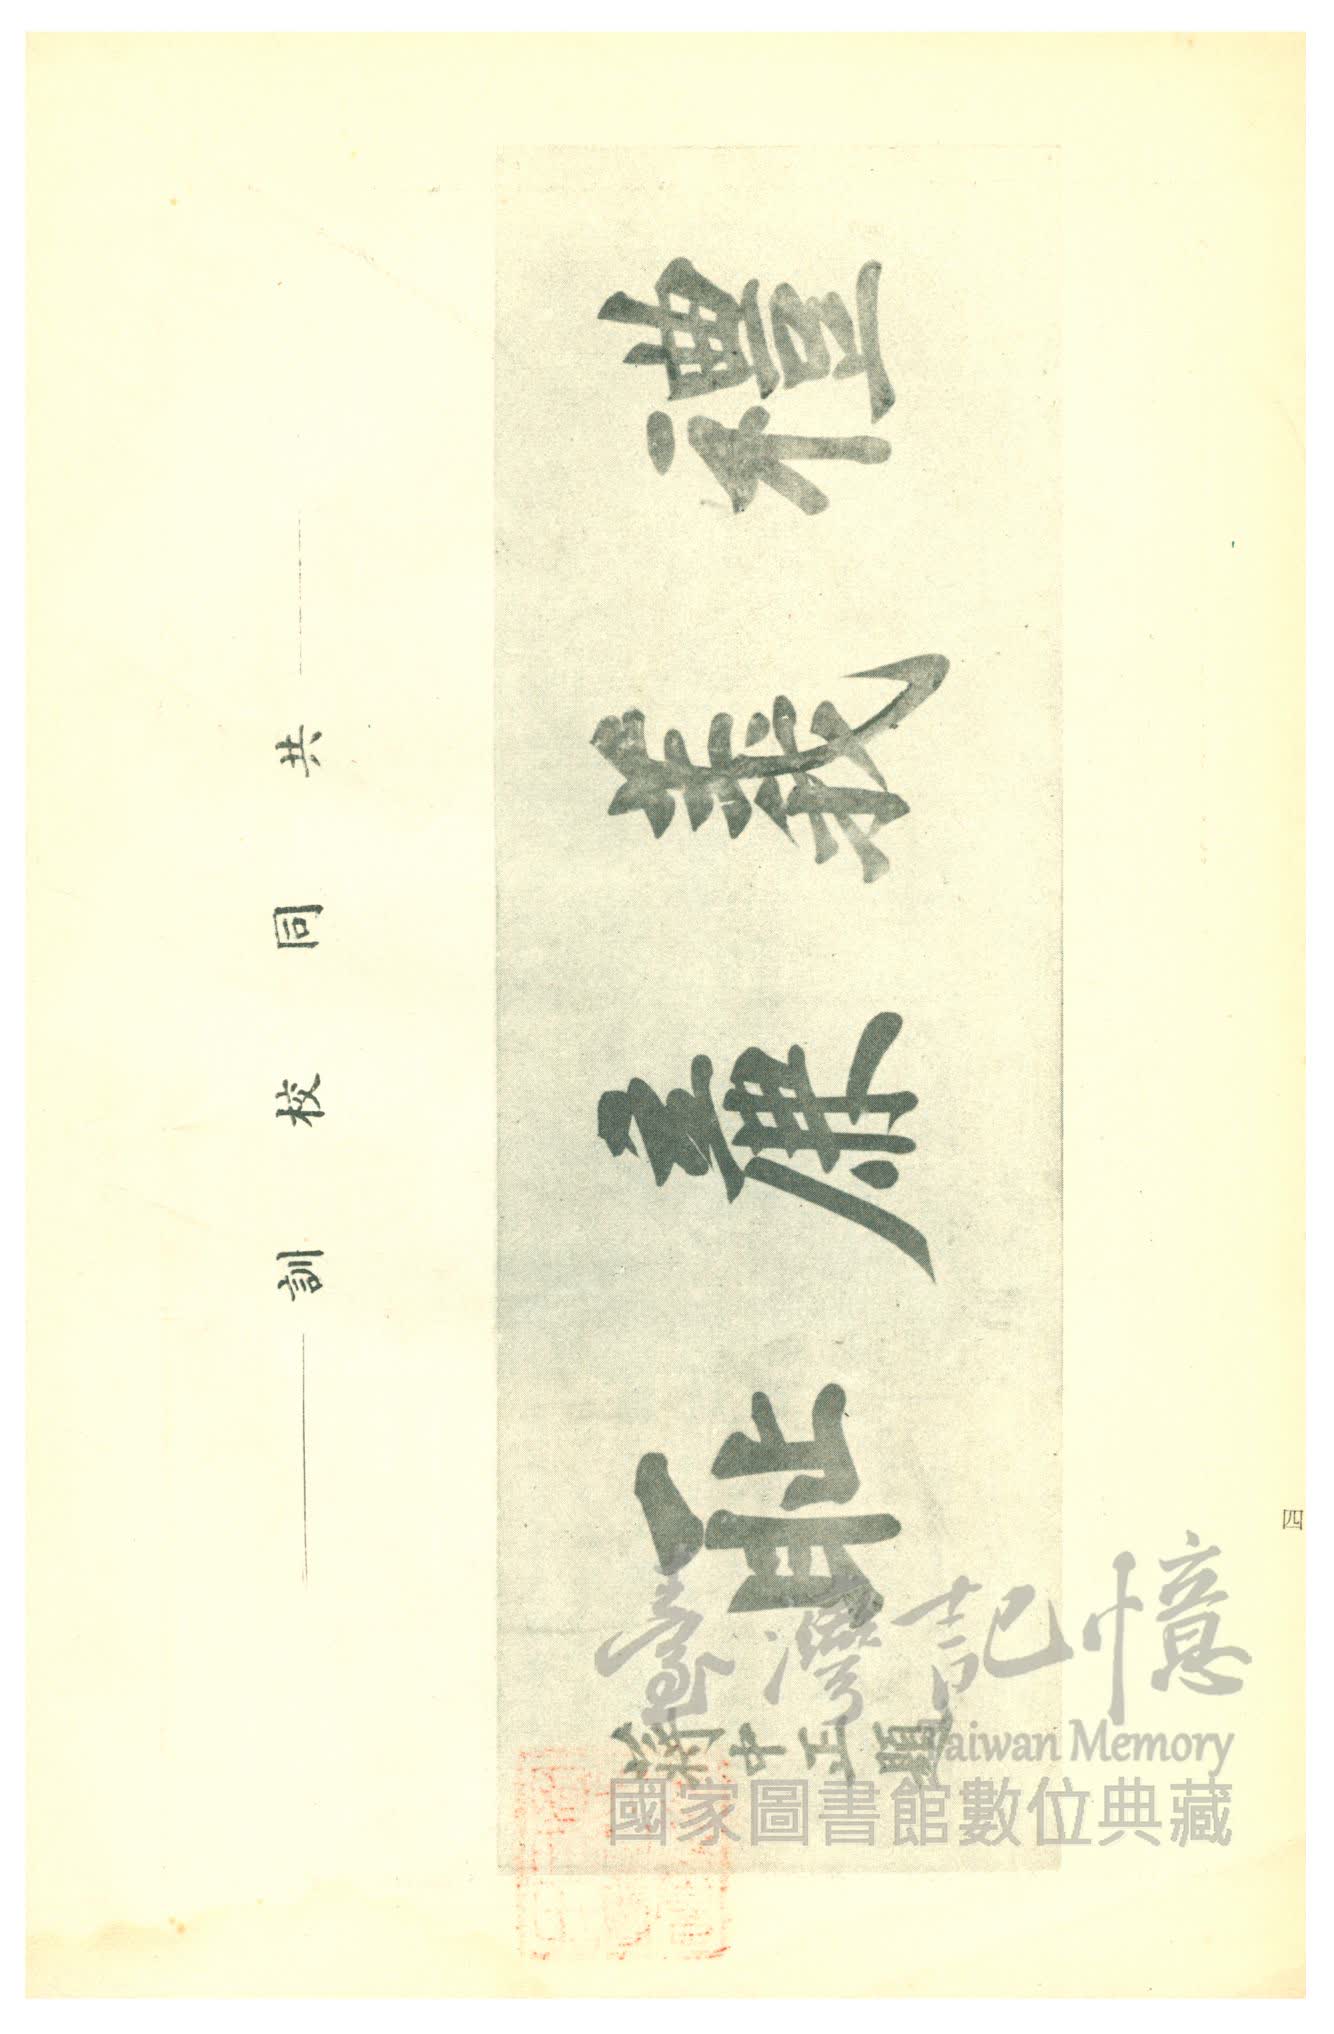 共同校訓
禮義廉恥
蔣中正題
四
臺灣記憶
Taiwan Memory
國家圖書館數位典藏